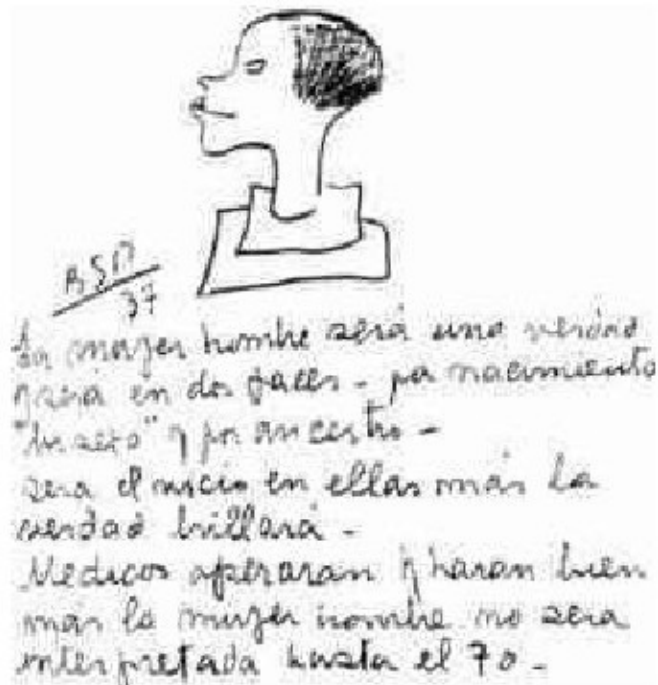 BSP
37
La mujer hombre será una verdad
y será en dos faces - por nacimiento
y por ancestro -
sera el vicio en ellas más la
verdad brillará -
Medicos operaran y haran bien
más la mujer hombre no sera
interpretada hasta el 70 -